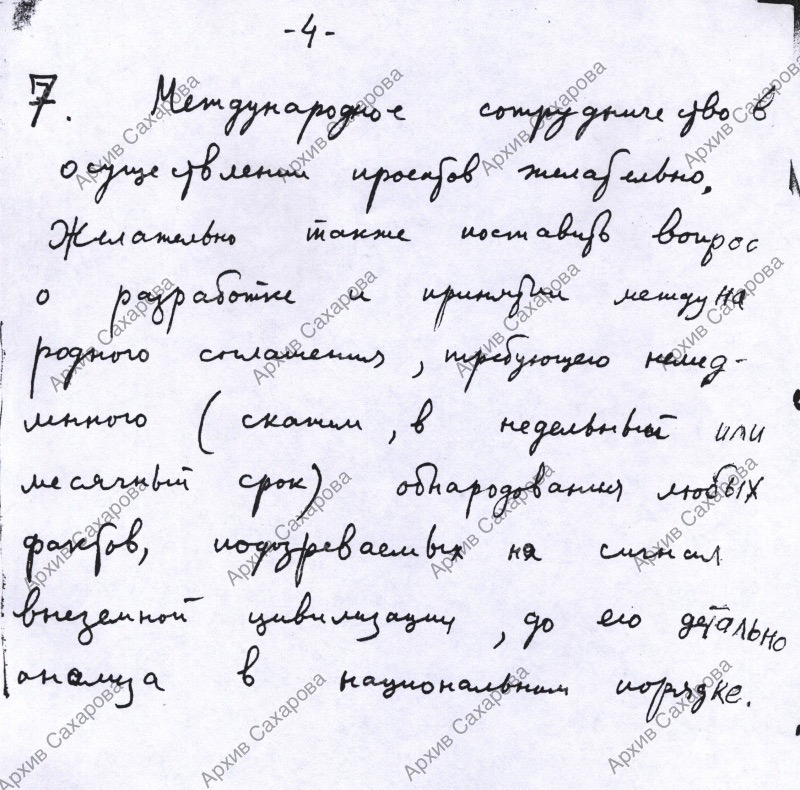 -4-
7. Международное сотрудничество в
осуществлении проектов желательно.
Желательно также поставить вопрос
о разработке и принятии междуна
родного соглашения, требующего немед-
ленного (скажем, в недельный или
месячный срок) обнародования любых
фактов, подозреваемых на сигнал
внеземной цивилизации, до его детально
анализа в национальном порядке.
Архив Сахарова